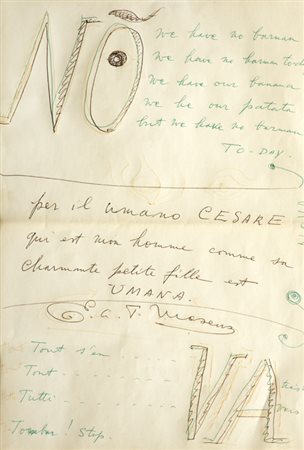 NO
we have no barman
we have no barman today
we have our banana
we be our patata
but we have no barman
TO-DAY.
per il umano CESARE
qui est mon homme comme sa
charmante petite fille est
UMANA.
E. L. T. Mesens
Tout s'en
Tout
Tutti
Tombar! Stop.
VA